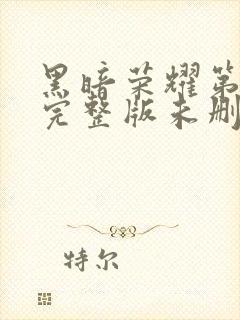 黑暗荣耀第
完整版未删
特尔